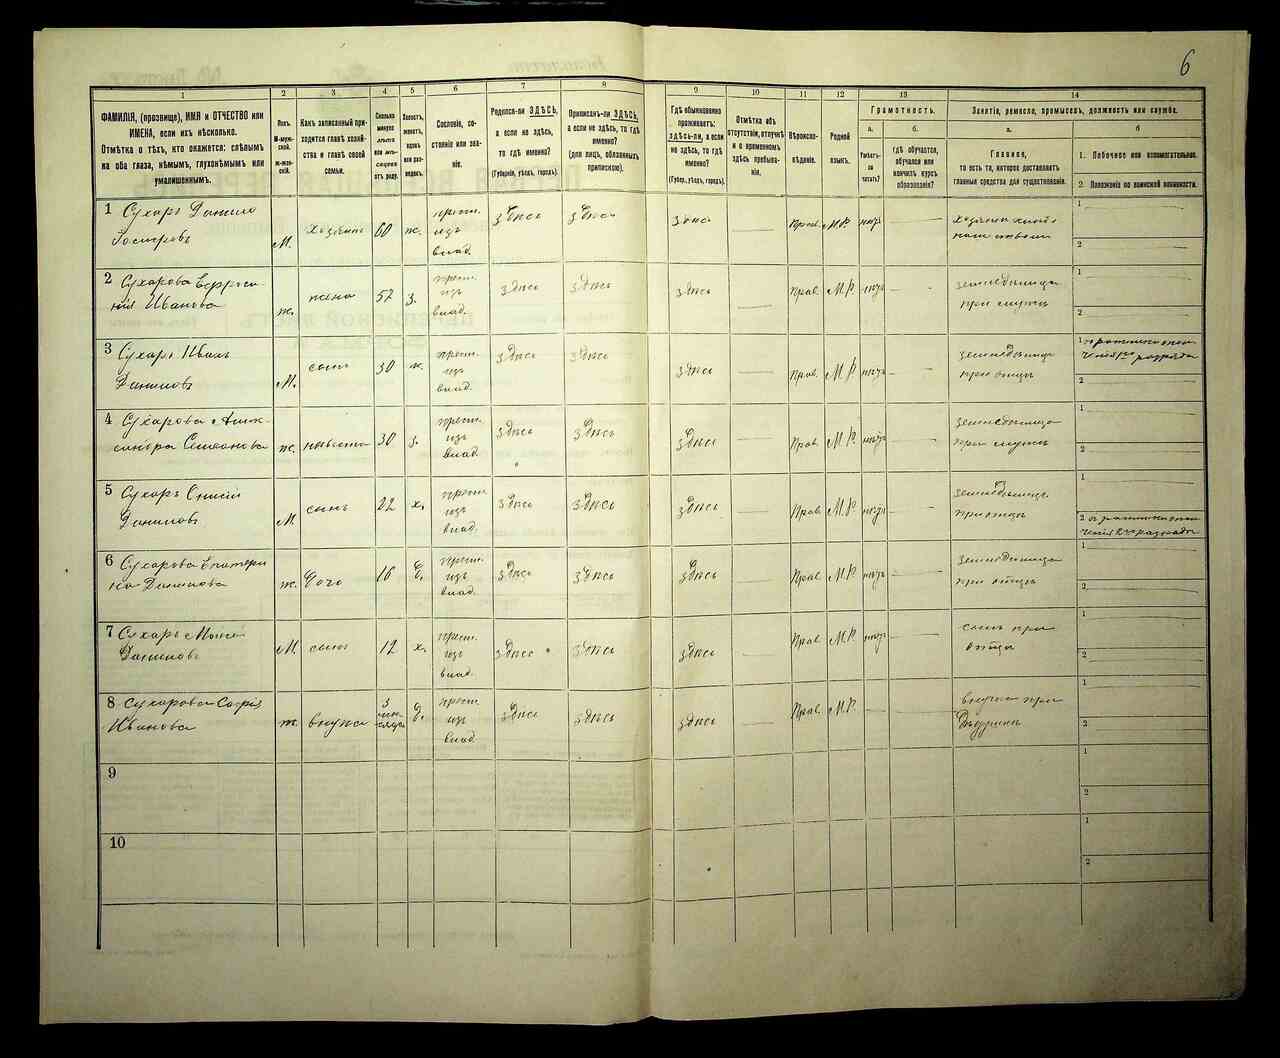 6
1
ФАМИЛІЯ, (прозвище), ИМЯ и ОТЧЕСТВО или
ИМЕНА, если ихъ нѣсколько.
Отмѣтка о тѣхъ, кто окажется: слѣпымъ
на оба глаза, нѣмымъ, глухонѣмымъ или
умалишеннымъ.
2
Полъ.
М-муж-
ской.
ж-жен-
скій.
3
Какъ записанный при-
ходится главѣ хозяй-
ства и главѣ своей
семьи.
4
Сколько
минуло
лѣтъ
или мѣ-
сяцевъ
отъ роду.
5
Холостъ,
женатъ,
вдовъ
или раз-
веденъ.
6
Сословіе, со-
стояніе или зва-
ніе.
7
Родился-ли ЗДѢСЬ,
а если не здѣсь,
то гдѣ именно?
(Губернія, уѣздъ, городъ).
8
Приписанъ-ли ЗДѢСЬ,
а если не здѣсь, то гдѣ
именно?
(для лицъ, обязанныхъ
припискою).
9
Гдѣ обыкновенно
проживаетъ:
здѣсь-ли, а если
не здѣсь, то гдѣ
именно?
(Губер., уѣздъ, городъ).
10
Отмѣтка объ
отсутствіи, отлучкѣ
и о временномъ
здѣсь пребыва-
ніи.
11
Вѣроиспо-
вѣданіе.
12
Родной
языкъ.
13
Грамотность.
а.
Умѣетъ-
ли
читать?
б.
гдѣ обучается,
обучался или
кончилъ курсъ
образованія?
14
Занятіе, ремесло, промыселъ, должность или служба.
а.
Главное,
то есть то, которое доставляетъ
главныя средства для существованія.
б
1. Побочное или вспомогательное.
2. Положеніе по воинской повинности.
1 Сухарь Данило
М. хозяинъ 60 ж. крест. изъ влад. здѣсь здѣсь здѣсь Прав. М.Р. нѣтъ
1
2
2 Сухарова Евфроси-
нія Иванова ж. жена 57 з. крест. изъ влад. здѣсь здѣсь здѣсь Прав. М.Р. нѣтъ земледѣлица
при мужѣ
1
2
3 Сухарь Иванъ
Даниловъ М. сынъ 30 ж. крест. изъ влад. здѣсь здѣсь здѣсь Прав. М.Р. нѣтъ
при отцѣ
1
разряда
2
4 Сухарова Алек-
сандра Семенова ж. невѣстка 30 з. крест. изъ влад. здѣсь здѣсь здѣсь Прав. М.Р. нѣтъ земледѣлица
при мужѣ
1
2
5 Сухарь
Даниловъ М. сынъ 22 х. крест. изъ влад. здѣсь здѣсь здѣсь Прав. М.Р. нѣтъ
при отцѣ
1
2
разряда
6 Сухарова Екатери-
на Данилова ж. дочь 16 д. крест. изъ влад. здѣсь здѣсь здѣсь Прав. М.Р. нѣтъ земледѣлица
при отцѣ
1
2
7 Сухарь
Даниловъ М. сынъ 12 х. крест. изъ влад. здѣсь здѣсь здѣсь Прав. М.Р. нѣтъ сынъ при
отцѣ
1
2
8 Сухарова Софія
Иванова ж. внучка 3 мѣ-сяца д. крест. изъ влад. здѣсь здѣсь здѣсь Прав. М.Р. внучка при
1
2
9
1
2
10
1
2